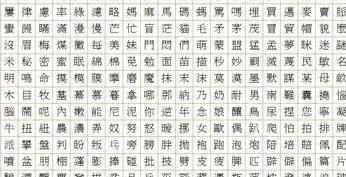 屢律慮率綠濾略媽麻馬碼螞罵嗎埋買邁麥賣脈
蠻饅瞞滿漫慢芒忙盲茫貓毛矛茅茂冒貿帽貌麼
沒眉梅煤黴每美妹門悶們萌蒙盟猛孟夢眯迷謎
米秘密蜜眠綿棉免勉面苗描秒妙廟滅蔑民敏名
明鳴命摸模膜摩磨魔抹末沫莫漠墨默謀某母畝
木目牧墓幕慕暮拿哪那納乃奶耐男南難囊撓惱
腦鬧呢內嫩能尼泥你逆年念娘釀鳥尿捏您寧凝
牛扭紐農濃弄奴努怒暖挪女歐偶趴爬怕拍排牌
派攀盤判盼叛旁胖拋袍跑泡炮陪培賠佩配
噴盆朋棚蓬膨捧碰批披劈皮疲脾匹僻偏篇片